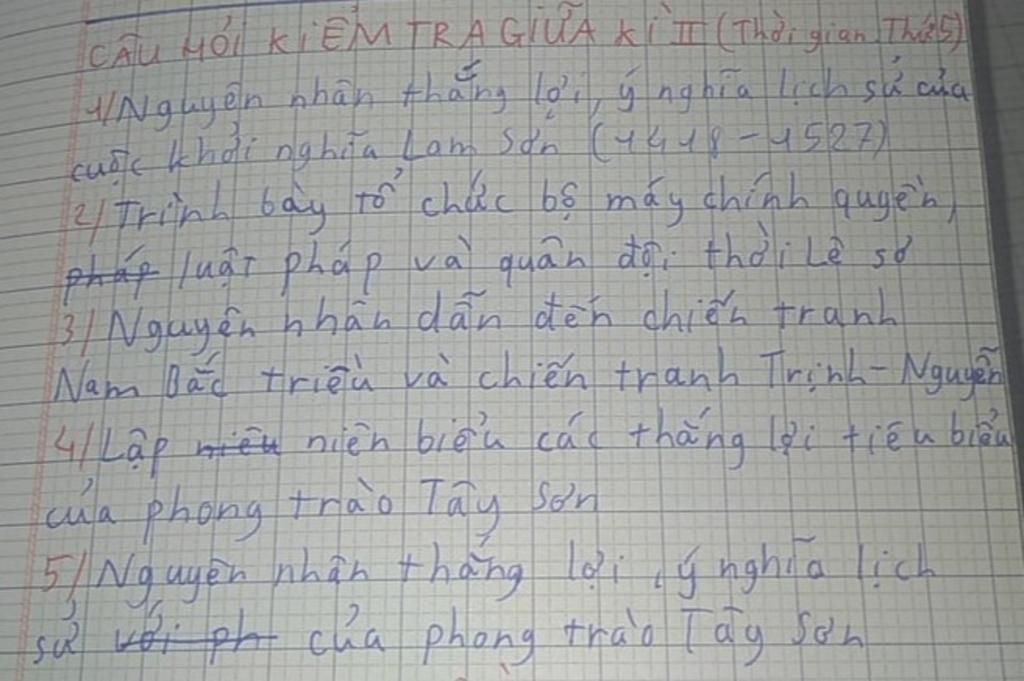 CÂU HỎI KIỂM TRA GIỮA KÌ II (Thời gian Thứ 5)
1/ Nguyên nhân thắng lợi, ý nghĩa lịch sử của
cuộc khởi nghĩa Lam Sơn (1418-1527)
2/ Trình bày tổ chức bộ máy chính quyền,
pháp luật pháp và quân đội thời Lê sơ
3/ Nguyên nhân dẫn đến chiến tranh
Nam Bắc triều và chiến tranh Trịnh-Nguyễn
4/ Lập niêu niên biểu các thắng lợi tiêu biểu
của phong trào Tây Sơn
5/ Nguyên nhân thắng lợi, ý nghĩa lịch
sử với ph của phong trào Tây Sơn